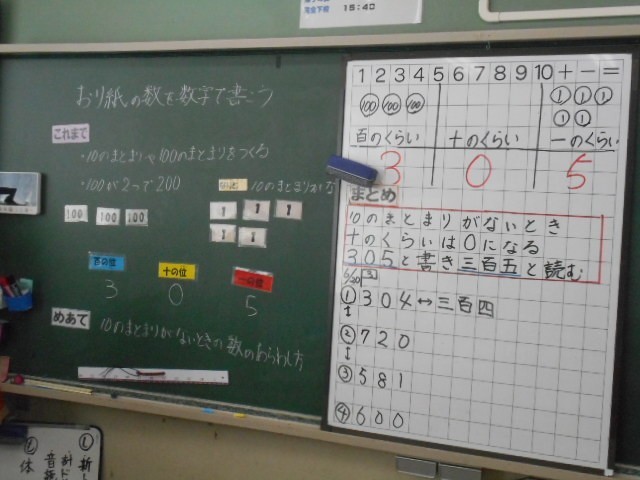 完全下校 15:40
おり紙の数を数字で書こう
これまで
・10のまとまりや100のまとまりをつくる
・100が2つで200
10のまとまりがな
100 100 100
1 1 1
1 1
百の位 十の位 一の位
3 0 5
めあて 10のまとまりがないときの数のあらわし方
1 2 3 4 5 6 7 8 9 10 + - =
100 100 100
1 1 1
1 1
百のくらい 十のくらい 一のくらい
3 0 5
まとめ
10のまとまりがないとき
十のくらいは0になる
305と書き三百五と読む
6/20
① 304↔三百四
② 720
③ 581
④ 600